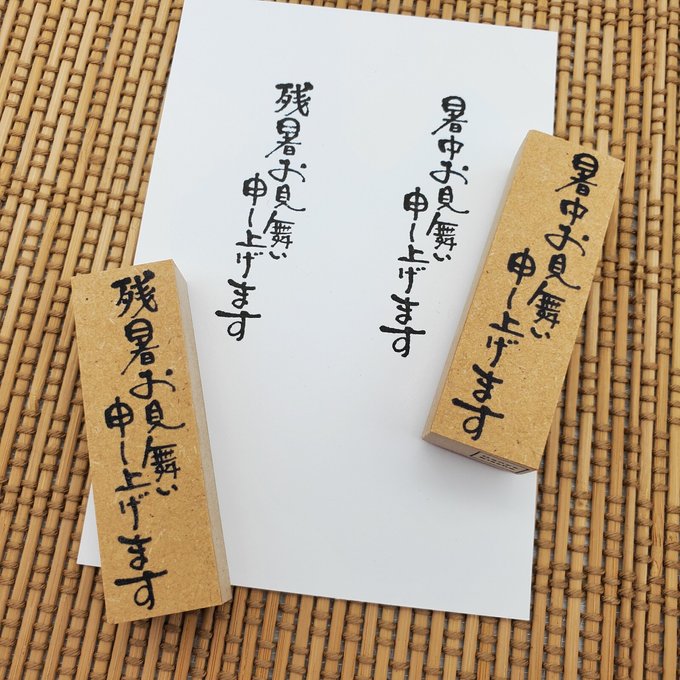 暑中お見舞い
申し上げます
残暑お見舞い
申し上げます
暑中お見舞い
申し上げます
残暑お見舞い
申し上げます